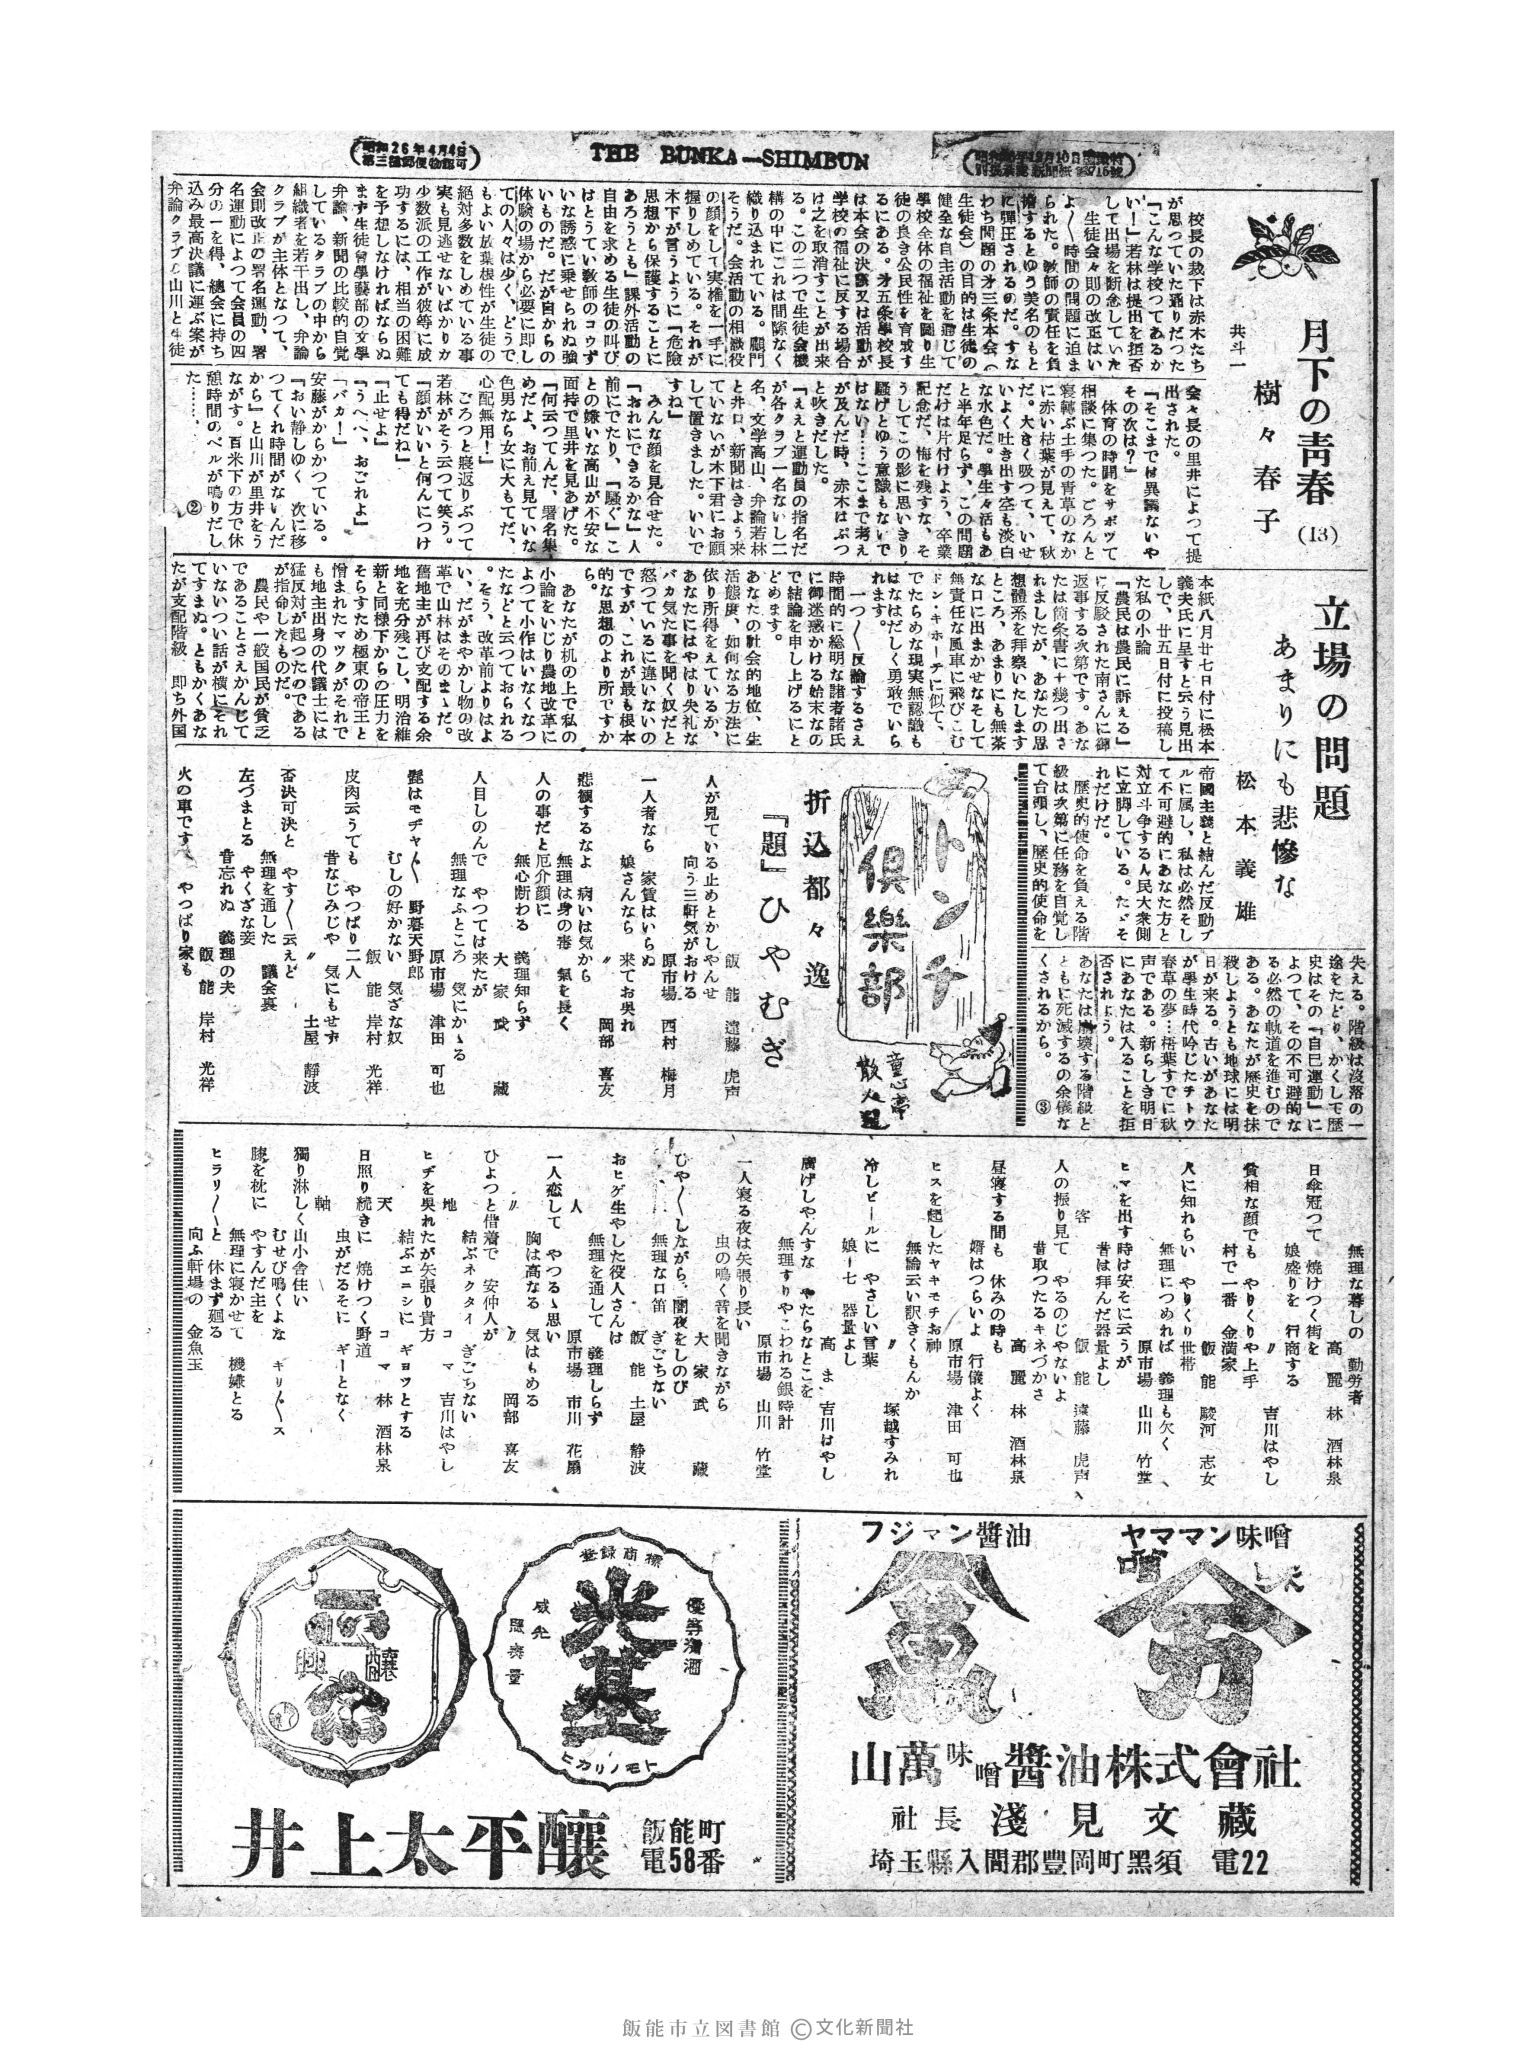 昭和26年4月4日
第三種郵便物認可
THE BUNKA—SHIMBUN
月下の靑春
(13)
樹々春子
共斗一
校長の裁下は赤木たち
が思つていた通りだつた
『こんな学校つてあるか
い!』若林は提出を拒否
して出場を断念していた
生徒会々則の改正はいい
よ〱時間の問題に迫ま
られた。教師の責任を負
擔するとゆう美名のもと
に彈圧されるのだ。すな
わち問題の才三条本会(
生徒会)の目的は生徒の
健全な自主活動を通じて
學校全体の福祉を圖り生
徒の良き公民性を育成す
るにある。才五条學校長
は本会の決議又は活動が
学校の福祉に反する場合
は之を取消すことが出来
る。この二つで生徒会機
構の中にこれは間隙なく
織り込まれている。顧門
そうだ。会活動の相談役
の顔をして実権を一手に
握りしめている。それが
木下が言うように「危險
思想から保護することに
あろうとも」課外活動の
自由を求める生徒の叫び
はとうてい敎師のコゥず
いな誘惑に乗せられぬ強
いものだ。だが自からの
体験の場から必要に即し
ての人々は少く、どうで
もよい放葉根性が生徒の
絶対多数をしめている事
実も見逃せないばかりか
少数派の工作が彼等に成
功するには、相当の困難
を予想しなければならぬ
まず生徒會學藝部の文學
弁論、新聞の比較的自覚
しているクラブの中から
クラブが主体となつて、
組織者を若干出し、弁論
会則改正の署名運動、署
名運動によつて会員の四
分の一を得、總会に持ち
込み最高決議に運ぶ案が
弁論クラブの山川と生徒
会々長の里井によつて提
出された。
『そこまでは異議ないや
その次は?』
体育の時間をサボツて
相談に集つた。ごろんと
寝轉ぶ土手の青草のなか
に赤い枯葉が見えて、秋
だ。大きく吸つて、いせ
いよく吐き出す空も淡白
な水色だ。學生々活もあ
と半年足らず、この問題
だけは片付けよう、卒業
記念だ、悔を残すな、そ
うしてこの影に思いきり
騒げとゆう意識もないで
はない!…ここまで考え
が及んだ時、赤木はぷつ
と吹きだした。
『ええと運動員の指名だ
が各クラブ一名ないし二
名、文学高山、弁論若林
と井口、新聞はきよう来
ていないが木下君にお願
して置きました。いいで
すね』
みんな顔を見合せた。
『おれにできるかな』人
前にでたり、『騒ぐ』こ
との嫌いな高山が不安な
面持で里井を見あげた。
『何云つてんだ、署名集
めだよ、お前え見ていな
色男なら女に大もてだ、
心配無用!』
ごろつと寢返りぶつて
若林がそう云つて笑う。
『顔がいいと何んにつけ
ても得だね』
『止せよ』
『うへへ、おごれよ』
『バカ!』
安藤がからかつている。
『おい静しゆく 次に移
つてくれ時間がないんだ
から』と山川が里井をう
ながす。百米下の方で休
憩時間のベルが鳴りだし
た……、 ②
立場の問題
あまりにも悲慘な
松本義雄
本紙八月廿七日付に松本
義夫氏に呈すと云う見出
しで、廿五日付に投稿し
た私の小論
『農民は農民に訴える』
に反駁された南さんに御
返事する次第です。あな
たは箇条書に十幾つ出さ
れましたが、あなたの思
想體系を拜察いたします
ところ、あまりにも無茶
な口に出まかせなそして
無責任な風車に飛びこむ
ドン・キホーテに似て、
でたらめな現実無認識も
はなはだしく勇敢でいら
れます。
一つ〱反論するさえ
時間的に総明な諸者諸氏
に御迷惑かける始末なの
で結論を申し上げるにと
どめます。
あなたの社会的地位、生
活態度、如何なる方法に
依り所得をえているか、
あなたにはやはり失礼な
バカ気た事を聞く奴だと
怒つているに違いないの
ですが、これが最も根本
的な思想のより所ですか
ら。
あなたが机の上で私の
小論をいじり農地改革に
よつて小作はいなくなつ
たなどと云つておられる
。そう、改革前よりはよ
い、だがまやかし物の改
革で山林はそのまゝだ。
舊地主が再び支配する余
地を充分残こし、明治維
新と同様下からの圧力を
そらすため極東の帝王と
憎まれたマツクがそれで
も地主出身の代議士には
猛反対が起つたのである
が指命したものだ。
農民や一般国民が貧乏
であることさえかんじて
いないつい話が横にそれ
てすまぬ。ともかくあな
たが支配階級 即ち外国
帝國主義と結んだ反動プ
ルに属し、私は必然そし
て不可避的にあなた方と
対立斗争する人民大衆側
に立脚している。たゞそ
れだけだ。
歴史的使命を負える階
級は次第に任務を自覚し
て台頭し、歴史的使命を
失える。階級は没落の一
途をたどり、かくして歴
史はその「自已運動」に
よつて、その不可避的な
る必然の軌道を進むので
ある。あなたが歴史を抹
殺しようとも地球には明
日が来る。古いがあなた
が學生時代吟じたチトウ
春草の夢…梧葉すでに秋
声である。新らしき明日
にあなたは入ることを拒
否されよう。
あなたは崩壊する階級と
ともに死滅するの余儀な
くされるから。 ③
トンチ
倶樂部
童心亭
散人選
折込都々逸
『題』ひやむぎ
人が見ている止めとかしやんせ
向う三軒気がおける
飯能 遠藤虎声
一人者なら 家賃はいらぬ
娘さんなら 来てお呉れ
原市場 西村梅月
悲観するなよ 病いは気から
無理は身の毒 氣を長く
〃 岡部喜友
人の事だと厄介顔に
無心断わる 義理知らず
大家武蔵
人目しのんで やつては来たが
無理なふところ 気にかゝる
原市場 津田可也
髭はモヂャ〱 野暮天野郎
むしの好かない 気ざな奴
飯能 岸村光祥
皮肉云うても やつぱり二人
昔なじみじや 気にもせず
〃 土屋靜波
否決可決と やす〱云えど
無理を通した 議会裏
左づまとる やくざな妾
昔忘れぬ 義理の夫
飯能 岸村光祥
火の車です やつぱり家も
無理な暮しの 勤労者
高麗 林酒林泉
日傘冠つて 焼けつく街を
娘盛りを 行商する
〃 吉川はやし
貧相な顔でも やりくりや上手
村で一番 金満家
飯能 駿河志女
人に知れらい やりくり世帯
無理につめれば 義理も欠く
原市場 山川竹堂
ヒマを出す時は安そに云うが
昔は拜んだ器量よし
飯能 遠藤虎声
客
人の振り見て やるのじやないよ
昔取つたるキネづかさ
高麗 林酒林泉
昼寝する間も 休みの時も
婿はつらいよ 行儀よく
原市場 津田可也
ヒスを起したヤキモチお神
無論云い訳きくもんか
〃 塚越すみれ
冷しビールに やさしい言葉
娘十七 器量よし
高ま 吉川はやし
廣げしやんすな やたらなとこを
無理すりやこわれる銀時計
原市場 山川竹堂
一人寝る夜は矢張り長い
虫の鳴く音を聞きながら
大家武蔵
ひや〱しながら、闇夜をしのび
無理な口笛 ぎごちない
飯能 土屋静波
おヒゲ生やした役人さんは
無理を通して 義理しらず
原市場 市川花扇
人
一人恋して やつるゝ思い
胸は高なる 気はもめる
〃 岡部喜友
〃
ひよつと借着で 安仲人が
結ぶネクタイ ぎごちない
コマ 吉川はやし
地
ヒヂを呉れたが矢張り貴方
結ぶエニシに ギョツとする
コマ 林酒林泉
天
日照り続きに 焼けつく野道
虫がだるそに ギーとなく
軸
獨り淋しく山小舎住い
むせび鳴くよな ギリ〱ス
膝を枕に やすんだ主を
無理に寝かせて 機嫌とる
ヒラリ〱と 休まず廻る
向ふ軒場の 金魚玉
ヤママン味噌
フジマン醬油
山萬味噌醬油株式會社
社長 淺見文藏
埼玉縣入間郡豊岡町黑須 電22
登録商標
優等清酒
光基
威光
照無量
ヒカリノモト
醸
興
井上太平釀
飯能町
電58番
飯能市立図書館 ©文化新聞社